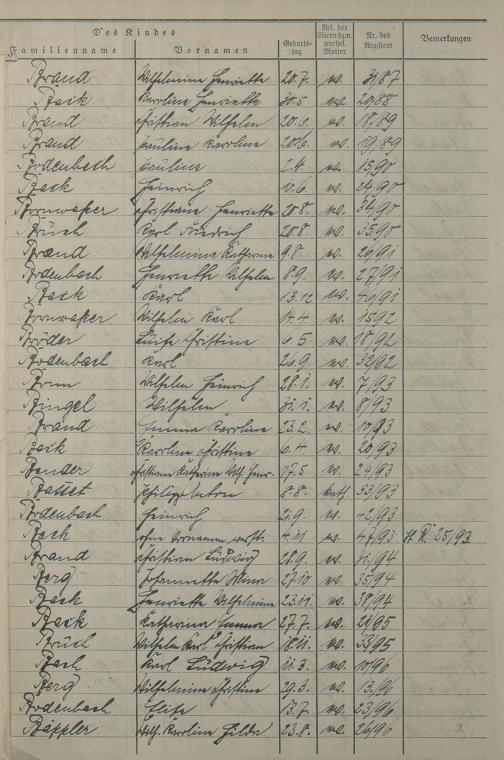 Des Kindes
Familienname Vornamen Geburts-tag Rel. der Eltern bzw. unehel. Mutter Nr. des Registers Bemerkungen
Brand Wilhelmine Henriette 20.7. ev. 31/87
Back Karoline Henriette 30.5 ev. 20/88
Brand Christian Wilhelm 20.6. ev. 18/89
Brand Pauline Karoline 20.6. ev. 19/89
Bodenbach Pauline 2.4. ev. 15/90
Back Heinrich 10.6. ev. 24/90
Bornwaßer Christiane Henriette 20.8. ev. 34/90
Bruch Karl Friedrich 20.8 ev. 35/90
Brand Wilhelmine Katharine 9.8. ev. 26/91
Bodenbach Henriette Wilhelm. 8.9. ev. 27/91
Back Karl 13.12 ev. 49/91
Bornwaßer Wilhelm Karl 14.4. ev. 15/92
Bröder Luise Christine 6.5 ev. 18/92
Bodenbach Karl 26.9 ev. 32/92
Wilhelm Heinrich 28.1. ev. 7/93
Bingel Wilhelm 31.1. ev. 8/93
Brand Emma Karoline 23.2. ev. 10/93
Back Karoline Christine 6.4. ev. 20/93
Bender Christiane Katharine Wilh. Henr. 17.5 ev. 24/93
Philipp Anton 8.8. kath. 33/93
Bodenbach Heinrich 21.9. ev. 42/93
Back ohne Vornamen verst. 4.11 ev. 47/93 25/93
Brand Christian Ludwig 28.9. ev. 31/94
Berg Johannette Mina 27.10 ev. 35/94
Back Henriette Wilhelmine 23.11. ev. 38/94
Back Katharina Emma 27.7. ev. 21/95
Bruch Wilhelm Karl Christian 18.11. ev. 33/95
Bach Karl Ludwig 11.3. ev. 10/96
Berg Wilhelmine Christine 29.3. ev. 13/96
Bodenbach Elise 13.7. ev. 23/96
Bäppler Wilh. Karoline Hilda 23.8. ev. 26/96